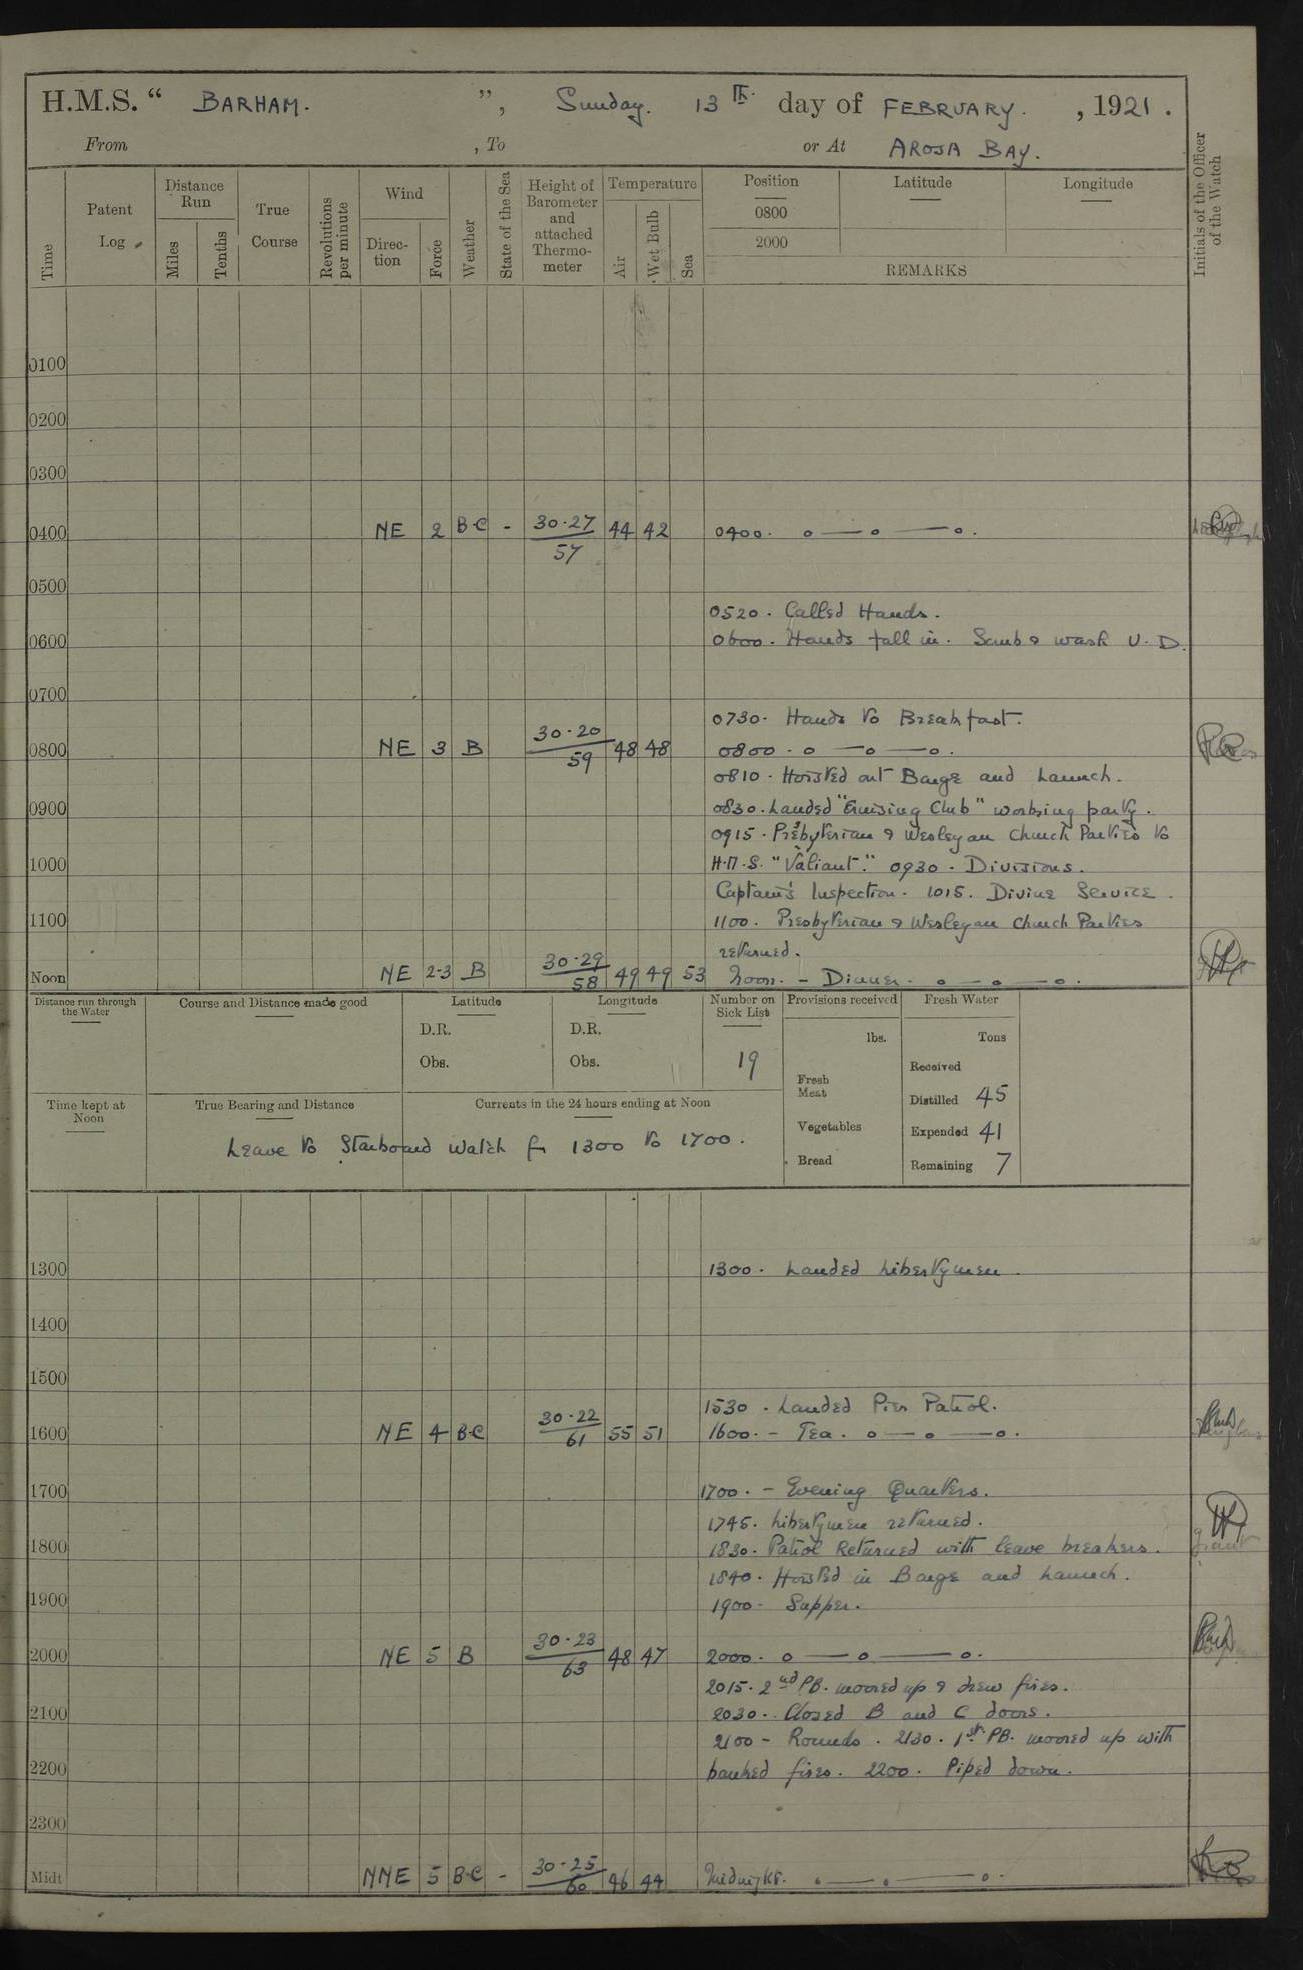 H.M.S. “ BARHAM. ”, Sunday. 13th. day of FEBRUARY. , 1921 .
From , To or At AROSA BAY.
Time
Patent Log
Distance Run
Miles
Tenths
True Course
Revolutions per minute
Wind
Direction
Force
Weather
State of the Sea
Height of Barometer and attached Thermometer
Temperature
Air
Wet Bulb
Sea
Position Latitude Longitude
0800
2000
REMARKS
Initials of the Officer of the Watch
0100
0200
0300
0400 NE 2 B·C - 30·27 44 42 0400.
57
0500
0520. Called Hands.
0600 0600. Hands fall in. Scrub & wash U. D.
0700
0730. Hands to Breakfast.
0800 NE 3 B 30·20 48 48 0800.
59
0810. Hoisted out Barge and Launch.
0900 0830. Landed "Cruising Club" working party.
0915. Presbyterian & Wesleyan Church Parties to
1000 H.M.S. "Valiant." 0930. Divisions.
Captain's Inspection. 1015. Divine Service.
1100 1100. Presbyterian & Wesleyan Church Parties
returned.
Noon NE 2-3 B 30·29 49 49 53 Noon. - Dinner.
58
Distance run through the Water
Course and Distance made good
Latitude
D.R.
Obs.
Longitude
D.R.
Obs.
Number on Sick List
19
Provisions received
lbs.
Fresh Meat
Vegetables
Bread
Fresh Water
Tons
Received
Distilled 45
Expended 41
Remaining 7
Time kept at Noon
True Bearing and Distance
Currents in the 24 hours ending at Noon
Leave to Starboard Watch fm 1300 to 1700.
1300 1300. Landed Libertymen.
1400
1500
1530. Landed Pier Patrol.
1600 NE 4 B·C 30·22 55 51 1600. - Tea.
61
1700 1700. - Evening Quarters.
1745. Libertymen returned.
1800 1830. Patrol Returned with leave breakers.
1840. Hoisted in Barge and Launch.
1900 1900. Supper.
2000 NE 5 B 30·23 48 47 2000.
63
2015. 2nd P.B. moored up & drew fires.
2100 2030. Closed B and C doors.
2100 - Rounds. 2130. 1st P.B. moored up with
2200 banked fires. 2200. Piped down.
2300
Midt NNE 5 B·C - 30·25 46 44 Midnight.
60